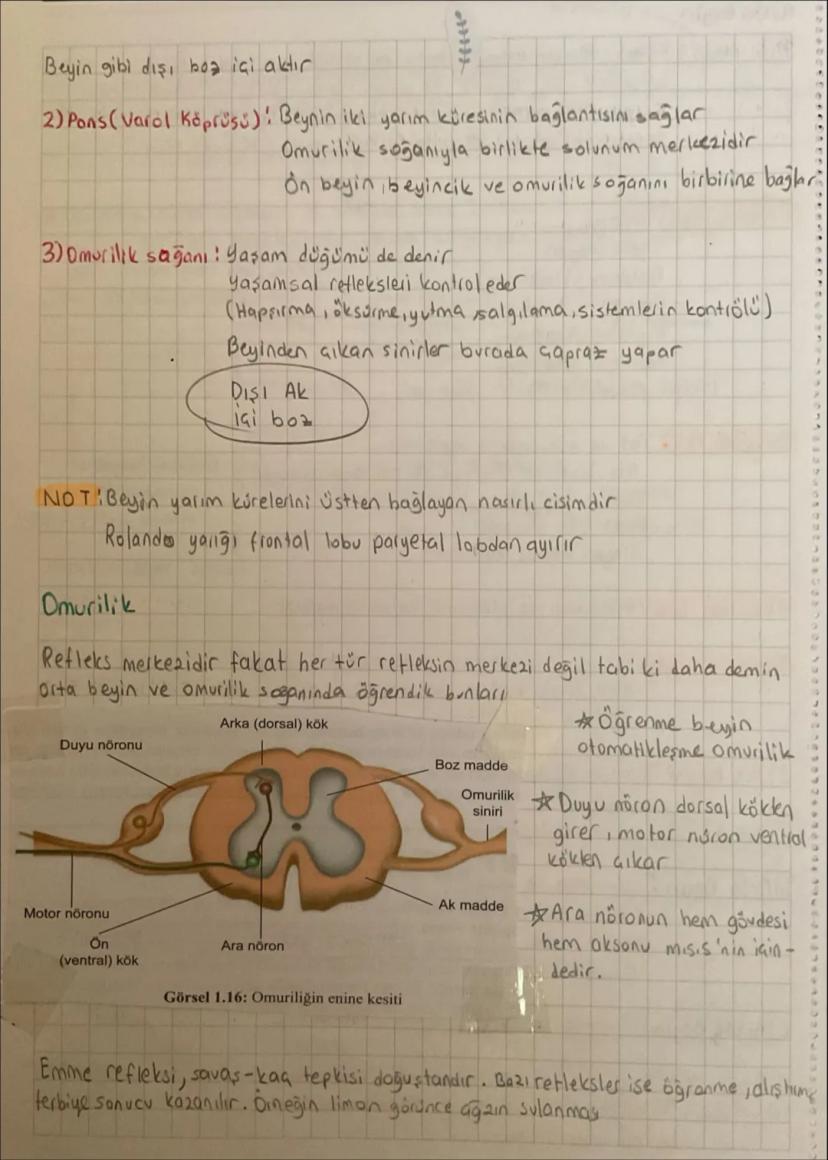 Beyin gibi dışı boz içi aktır
2) Pons (Varol Köprüsü): Beynin iki yarım küresinin bağlantısını sağlar
Omurilik soğanıyla birlikte solunum merkezidir
Ön beyin, beyincik ve omurilik soğanını birbirine bağlar
3) Omurilik sağanı: Yaşam düğümü de denir
Yaşamsal refleksleri kontrol eder
(Hapşırma, öksürme, yutma, salgılama, sistemlerin kontrölü)
Beyinden çıkan sinirler burada çapraz yapar
Dışı Ak
içi boz
NOT: Beyin yarım kürelerini üstten bağlayan nasırlı cisimdir
Rolando yarığı frontal lobu paryetal lobdan ayırır
Omurilik
Refleks merkezidir fakat her tür refleksin merkezi değil tabi ki daha demin
orta beyin ve omurilik soğanında öğrendik bunları
★ Öğrenme beyin
otomatikleşme omurilik
★ Duyu nöron dorsal kökten
girer, motor nöron ventral
kökten çıkar
★ Ara nöronun hem gövdesi
hem aksonu m.s.s'nin için-
dedir.
Arka (dorsal) kök
Duyu nöronu
Boz madde
Omurilik
siniri
Motor nöronu
Ak madde
Ön
(ventral) kök
Ara nöron
Görsel 1.16: Omuriliğin enine kesiti
Emme refleksi, savaş-kaç tepkisi doğuştandır. Bazı refleksler ise öğranme, alıştırma
terbiye sonucu kazanılır. Örneğin limon görünce ağzın sulanması